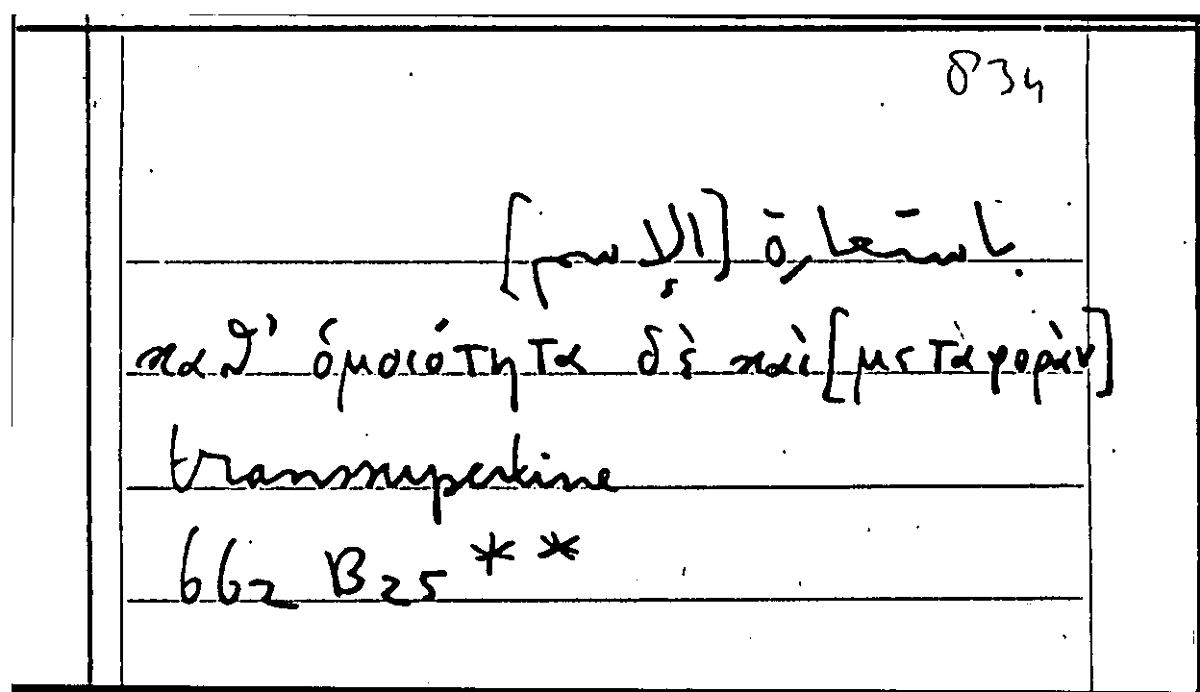 834
باستعارة [الإسم]
καθ' ὁμοιότητα δὲ καὶ [μεταφορὰν]
662 B25 **